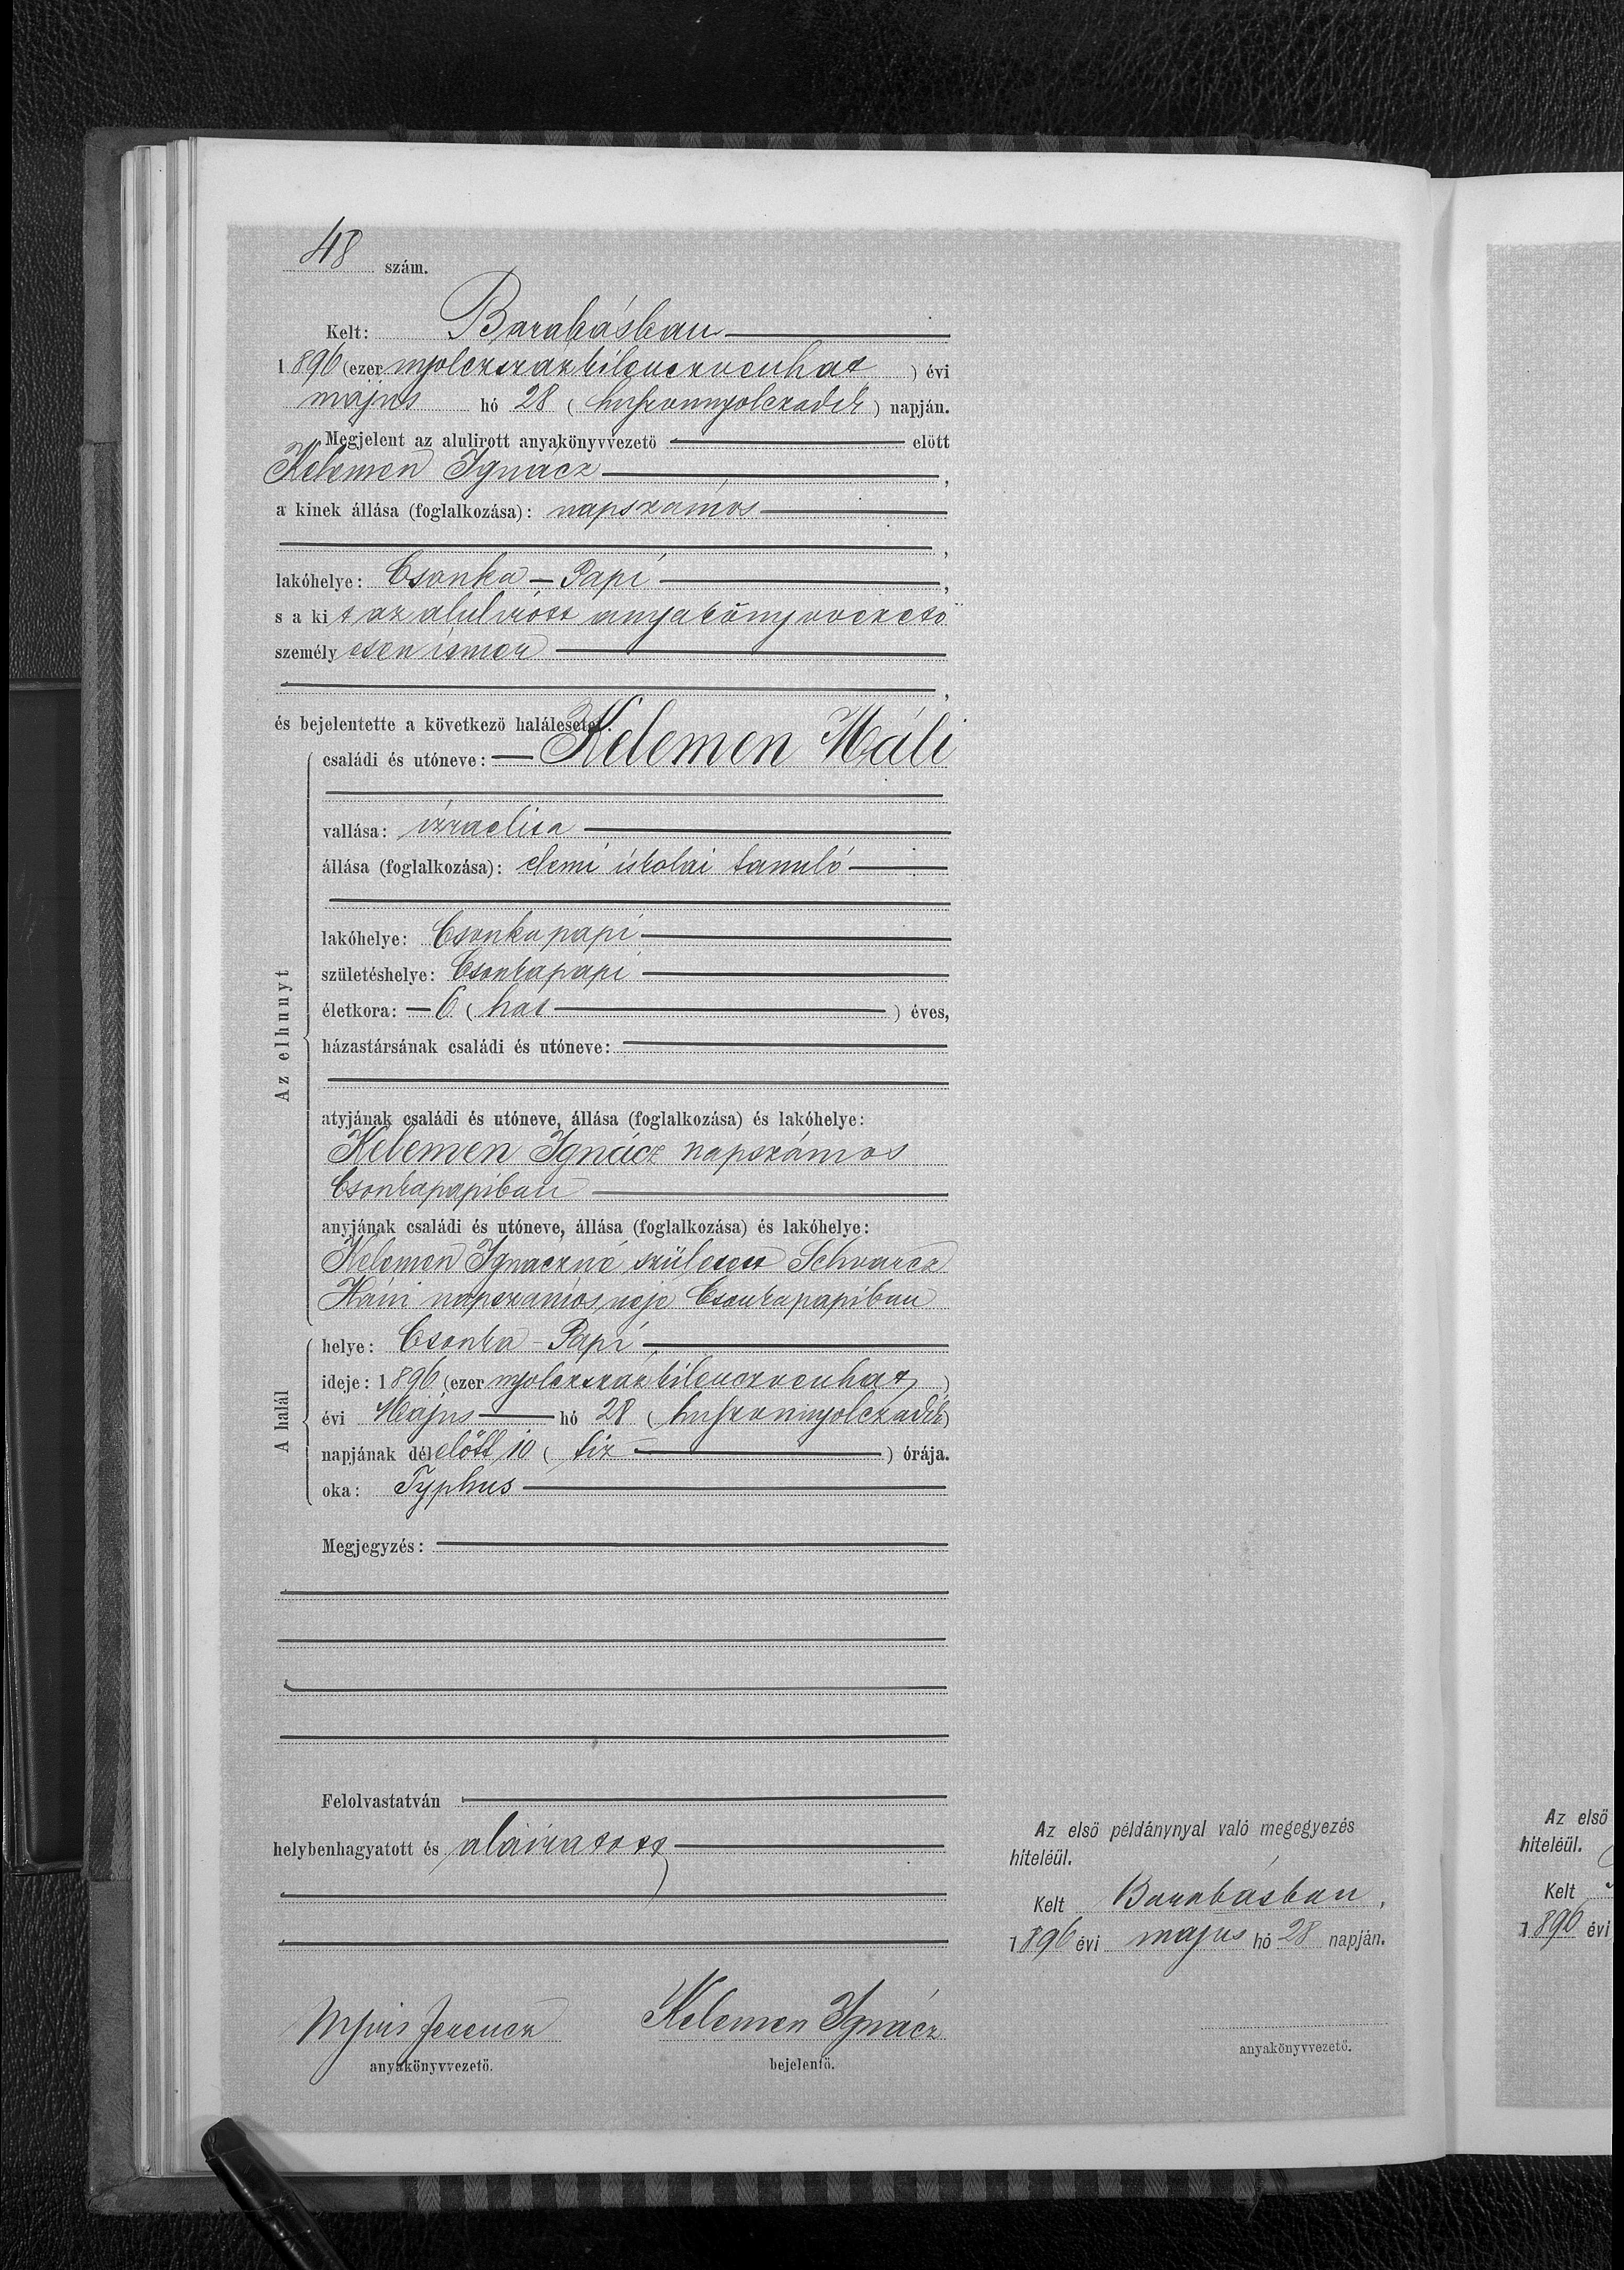 48 szám.
Kelt: Barabásban
1896 (ezer nyolczszázkilenczvenhat ) évi
május hó 28 ( huszonnyolczadik ) napján.
Megjelent az alulirott anyakönyvvezető előtt
Kelemen Ignácz ,
a kinek állása (foglalkozása): napszámos
,
lakóhelye: Csonka-Papi ,
s a ki t az alulirott anyakönyvvezető
személy esen ismer
,
és bejelentette a következő halálesetet:
családi és utóneve: Kelemen Máli
vallása: izraelita
állása (foglalkozása): elemi iskolai tanuló
Az elhunyt
lakóhelye: Csonkapapi
születéshelye: Csonkapapi
életkora: 6 ( hat ) éves,
házastársának családi és utóneve:
atyjának családi és utóneve, állása (foglalkozása) és lakóhelye:
Kelemen Ignácz napszámos
Csonkapapiban
anyjának családi és utóneve, állása (foglalkozása) és lakóhelye:
Kelemen Ignáczné született Schvarcz
Háni napszámos neje Csonkapapiban
A halál
helye: Csonka-Papi
ideje: 1896 (ezer nyolczszázkilenczvenhat )
évi Május hó 28 ( huszonnyolczadik )
napjának délelőtt 10 ( tiz ) órája.
oka: Typhus
Megjegyzés:
Felolvastatván
helybenhagyatott és aláiratott
Ferencz Kelemen Ignácz
anyakönyvvezető. bejelentő.
Az első példánynyal való megegyezés
hiteléül.
Kelt Barabásban,
1896 évi majus hó 28 napján.
anyakönyvvezető.
Az első
hiteléül.
Kelt
1896 évi